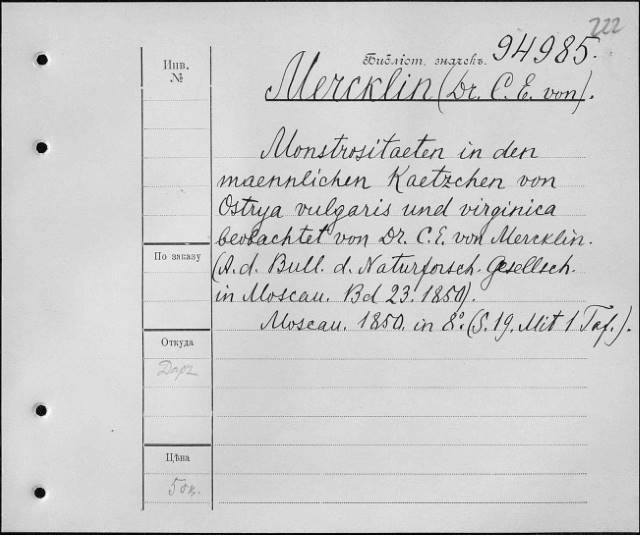 222
Библіот. значекъ. 94985.
Инв.
№
Mercklin (Dr. C. E. von).
Monstrositaeten in den
maennlichen Kaetzchen von
Ostrya vulgaris und virginica
beobachtet von Dr. C. E. von Mercklin.
(A. d. Bull. d. Naturforsch. Gesellsch.
in Moscau. Bd 23. 1850).
Moscau. 1850. in 8°. (S. 19. Mit 1 Taf.).
По заказу
Откуда
Даръ
Цѣна
50к.